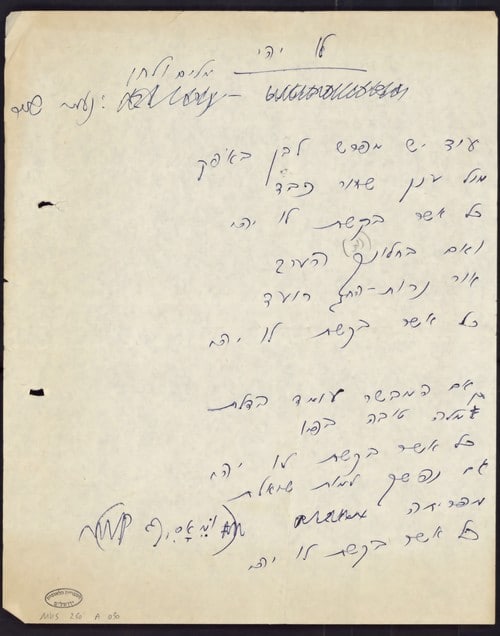 לו יהי
מילים ולחן
: נעמי שמר
עוד יש מפרש לבן באופק
מול ענן שחור כבד
כל אשר נבקש לו יהי
ואם בחלונות הערב
אור נרות-החג רועד
כל אשר נבקש לו יהי
אם המבשר עומד בדלת
מלה טובה בפיו
כל אשר נבקש לו יהי
אם נפשך למות שואלת
מפריחה ומאסיף
כל אשר נבקש לו יהי
MUS 260 A 050